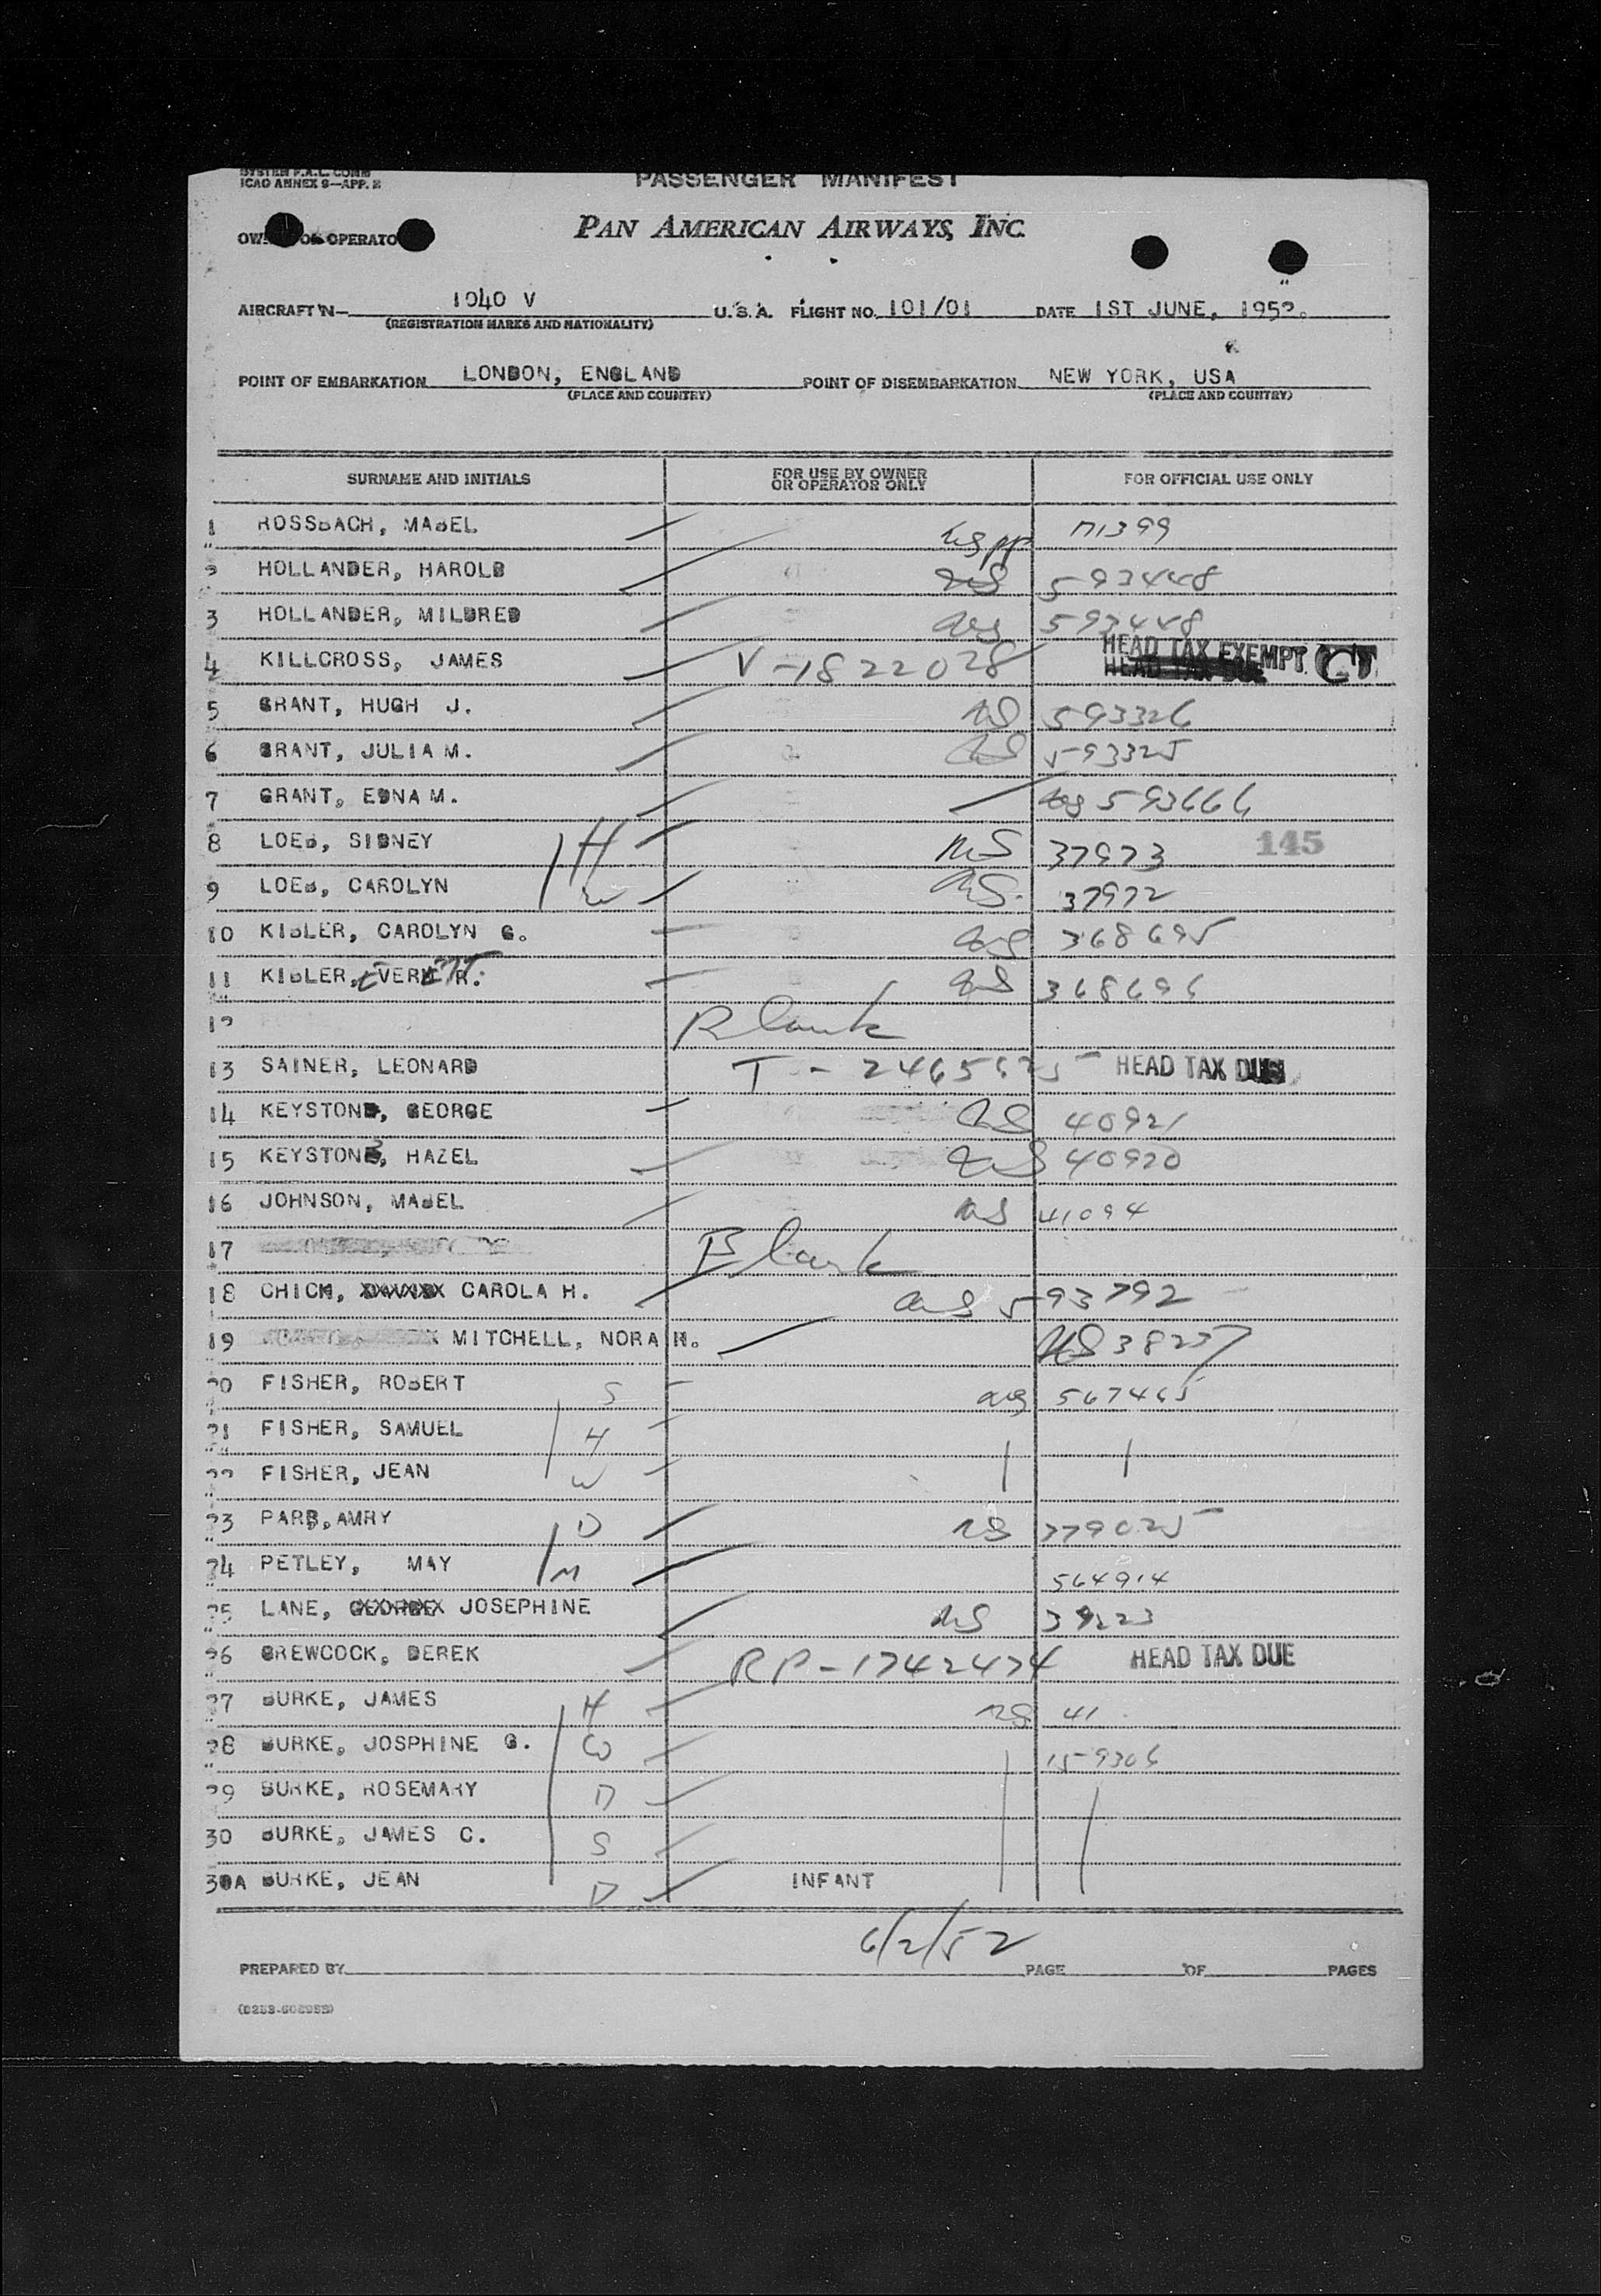 SYSTEM F.A.L. COMM
ICAO ANNEX 9—APP. 2
PASSENGER MANIFEST
OPERATO
PAN AMERICAN AIRWAYS, INC.
AIRCRAFT N- 1040 V U.S.A. FLIGHT NO. 101/01 DATE 1ST JUNE, 1952.
(REGISTRATION MARKS AND NATIONALITY)
POINT OF EMBARKATION LONDON, ENGLAND POINT OF DISEMBARKATION NEW YORK, USA
(PLACE AND COUNTRY) (PLACE AND COUNTRY)
SURNAME AND INITIALS FOR USE BY OWNER OR OPERATOR ONLY FOR OFFICIAL USE ONLY
1 ROSSBACH, MABEL US PP 71399
2 HOLLANDER, HAROLD US 593448
3 HOLLANDER, MILDRED US 593448
4 KILLCROSS, JAMES V-1822028 HEAD TAX EXEMPT
HEAD TAX DUE
5 GRANT, HUGH J. US 593326
6 GRANT, JULIA M. US 593325
7 GRANT, EDNA M. US 593666
8 LOEB, SIDNEY H US 37973 145
9 LOEB, CAROLYN W US. 37972
10 KIBLER, CAROLYN G. US 368695
11 KIBLER, EVERETT R. US 368696
12 Blank
13 SAINER, LEONARD T - HEAD TAX DUE
14 KEYSTONE, GEORGE US 40921
15 KEYSTONE, HAZEL US 40920
16 JOHNSON, MABEL US 41094
17 Blank
18 CHICK, CAROLA H. US 593792
19 MITCHELL, NORA N. US 38257
20 FISHER, ROBERT S US 567465
21 FISHER, SAMUEL H
22 FISHER, JEAN W
23 PARR, AMRY D US 379025
24 PETLEY, MAY M 564914
25 LANE, GEORGE JOSEPHINE US 39223
26 GREWCOCK, DEREK RP-1742474 HEAD TAX DUE
27 BURKE, JAMES H US 41
28 BURKE, JOSPHINE G. W 159306
29 BURKE, ROSEMARY D
30 BURKE, JAMES C. S
30A BURKE, JEAN D INFANT
6/2/52
PREPARED BY PAGE OF PAGES